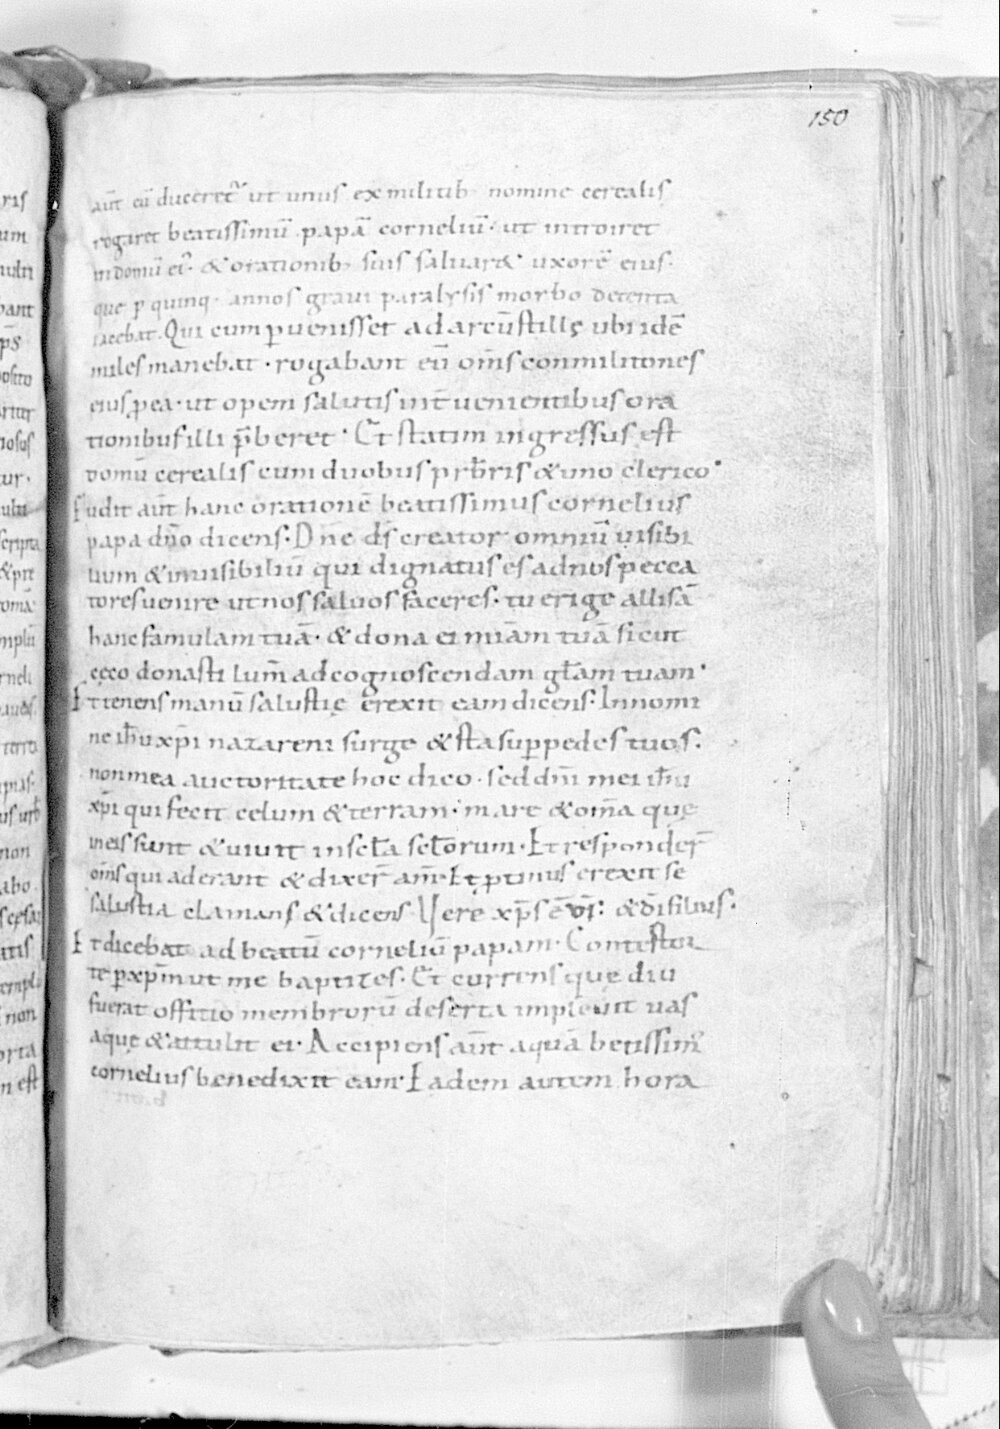 150
aut̄ eūduceret᷑ ut unus ex militib; nomine cerealis
rogaret beatissimū papā corneliū· ut introiret
in domū ei᷒· & orationib; suis saluar& uxorē eius·
que p̱ quinq; annos graui paralysis morbo detenta
iacebat. Qui cum p̱uenisset ad arcū stillę ubi idē
miles manebat · rogabant eū om̄s conmilitones
eius p̱ea· ut opem salutis int̄uenientibus ora
tionibus illi p̄beret· Et statim ingressus est
domū cerealis cum duobus pr̄bris & uno clerico·
Fudit aut̄ hanc orationē beatissimus cornelius
papa dn̄o dicens· Dn̄e ds̄ creator omniū uisibi
lium & inuisibiliū qui dignatus es ad nos pecca
tores uenire ut nos saluos faceres· tu erige allisā
hanc famulam tuā· & dona ei miām tuā sicut
cęco donasti lum̄ ad cognoscendam gl̄am tuam·
Et tenens manū salustię erexit eam dicens· In nomi
ne ih̄u xp̄i nazareni surge & sta sup̱ pedes tuos·
non mea auctoritate hoc dico · sed dn̄i mei ih̄u
xp̄i qui fecit celum & terram· mare & om̄a quę
in eis sunt & uiuit in scl̄a scl̄orum· Et responder̄
om̄s qui aderant & dixer̄ am̄· Et p̱tinus erexit se
salustia clamans & dicens Uere xp̄s ē ds̄· & dī filius·
Et dicebat ad beatū corneliū papam· Contestor
te p̱ xp̄m ut me baptizes· Et currens quę diu
fuerat offitio membrorū deserta impleuit uas
aquę & attulit ei· Accipiens aut̄ aquā betissim᷒
cornelius benedixit eam· Eadem autem hora